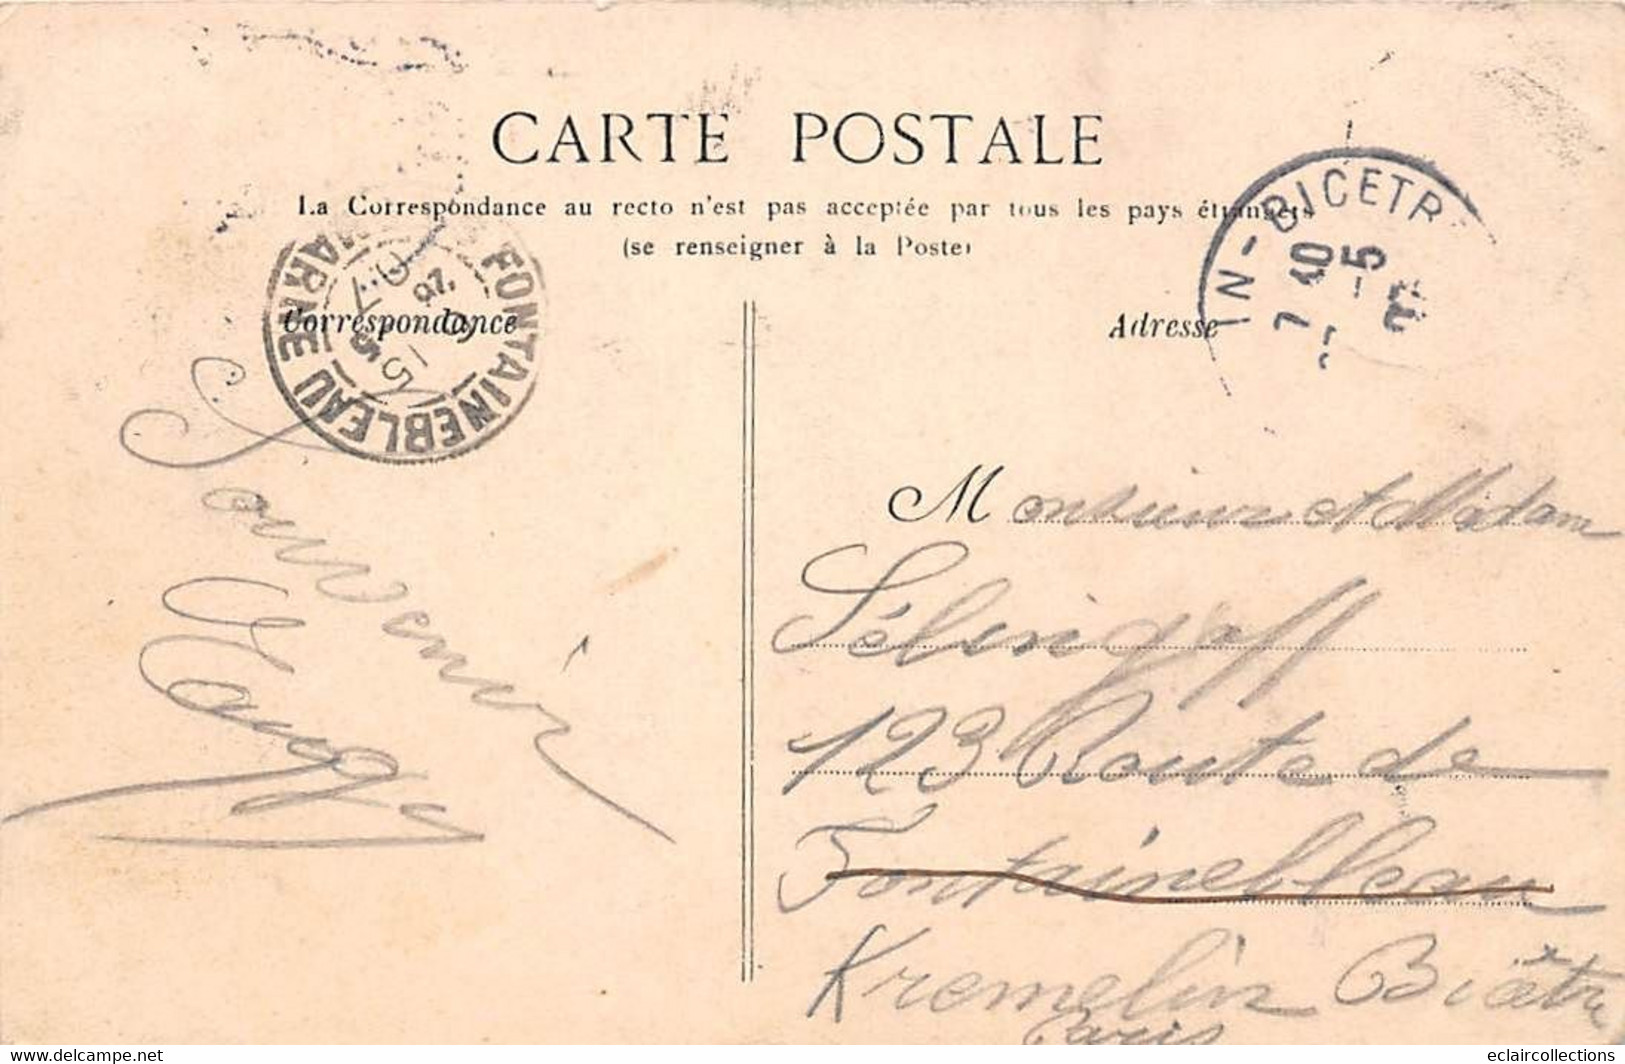 CARTE POSTALE
La Correspondance au recto n'est pas acceptée par tous les pays étrangers
(se renseigner à la Poste)
Correspondance
Adresse
FONTAINEBLEAU
MARNE
IN-BICETRE
7 40
5
Souvenir
Monsieur et Madam
Sélingaff
123 Route de
Fontainebleau
Kremelin Bicêtre
Paris
www.delcampe.net
eclaircollections